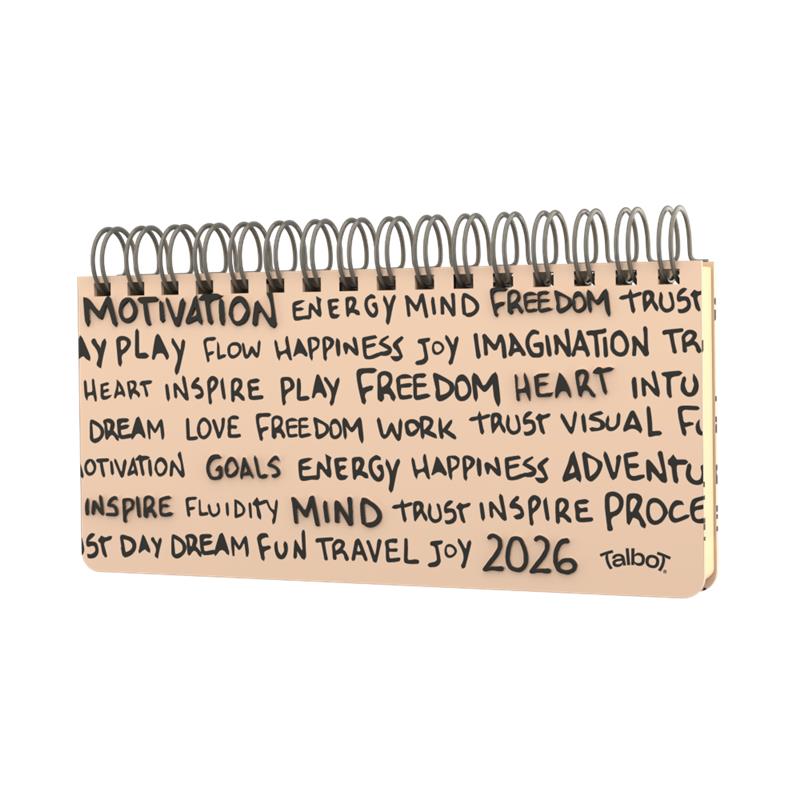 MOTIVATION ENERGY MIND FREEDOM TRUST
AY PLAY FLOW HAPPINESS JOY IMAGINATION TR
HEART INSPIRE PLAY FREEDOM HEART INTU
DREAM LOVE FREEDOM WORK TRUST VISUAL FU
OTIVATION GOALS ENERGY HAPPINESS ADVENTU
INSPIRE FLUIDITY MIND TRUST INSPIRE PROCE
ST DAY DREAM FUN TRAVEL JOY 2026 Talbot®